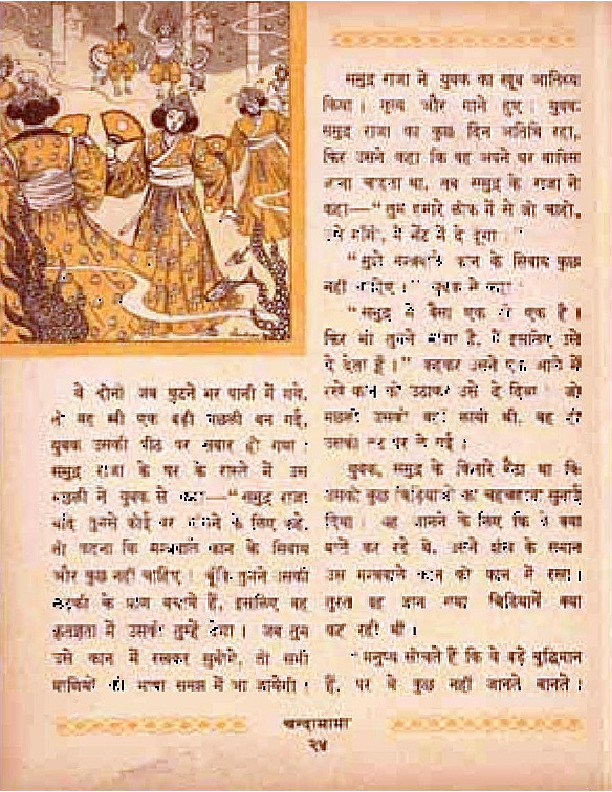 वे दोनों जब घुटने भर पानी में गये,
तो वह स्त्री एक बड़ी मछली बन गई,
युवक उसकी पीठ पर सवार हो गया।
समुद्र राजा के घर के रास्ते में उस
मछली ने युवक से कहा—"समुद्र राजा
यदि तुमसे कोई वर माँगने के लिए कहे,
तो कहना कि मन्त्रवाले कान के सिवाय
और कुछ नहीं चाहिए। चूँकि तुमने उसकी
लड़की के प्राण बचाये हैं, इसलिए वह
कृतज्ञता में उसको तुम्हें देगा। जब तुम
उसे कान में रखकर सुनोगे, तो सभी
प्राणियों की भाषा समझ में आ जायेगी।
समुद्र राजा ने युवक का खूब आतिथ्य
किया। नृत्य और गाने हुए। युवक
समुद्र राजा का कुछ दिन अतिथि रहा,
फिर उसने कहा कि वह अपने घर वापिस
जाना चाहता था, तब समुद्र के राजा ने
कहा—"तुम हमारे लोक में से जो चाहो,
सो माँगो, मैं भेंट में दे दूँगा।"
"मुझे मन्त्रवाले कान के सिवाय कुछ
नहीं चाहिए।" युवक ने कहा।
"समुद्र में वैसा एक ही एक है।
फिर भी तुमने माँगा है, मैं इसलिए उसे
दे देता हूँ।" कहकर उसने एक आले में
रखे कान को उठाकर उसे दे दिया। जो
मछली उसको वहाँ लायी थी, वह ही
उसको तट पर ले गई।
युवक, समुद्र के किनारे बैठा था कि
उसको कुछ चिड़ियाओं का चहचहाना सुनाई
दिया। यह जानने के लिए कि वे क्या
बातें कर रहे थे, अपने कान के समान
उस मन्त्रवाले कान को कान में रखा।
तुरत वह जान गया चिड़ियायें क्या
कह रही थीं।
"मनुष्य सोचते हैं कि वे बड़े बुद्धिमान
हैं, पर वे कुछ नहीं जानते वानते।
चन्दामामा
२४